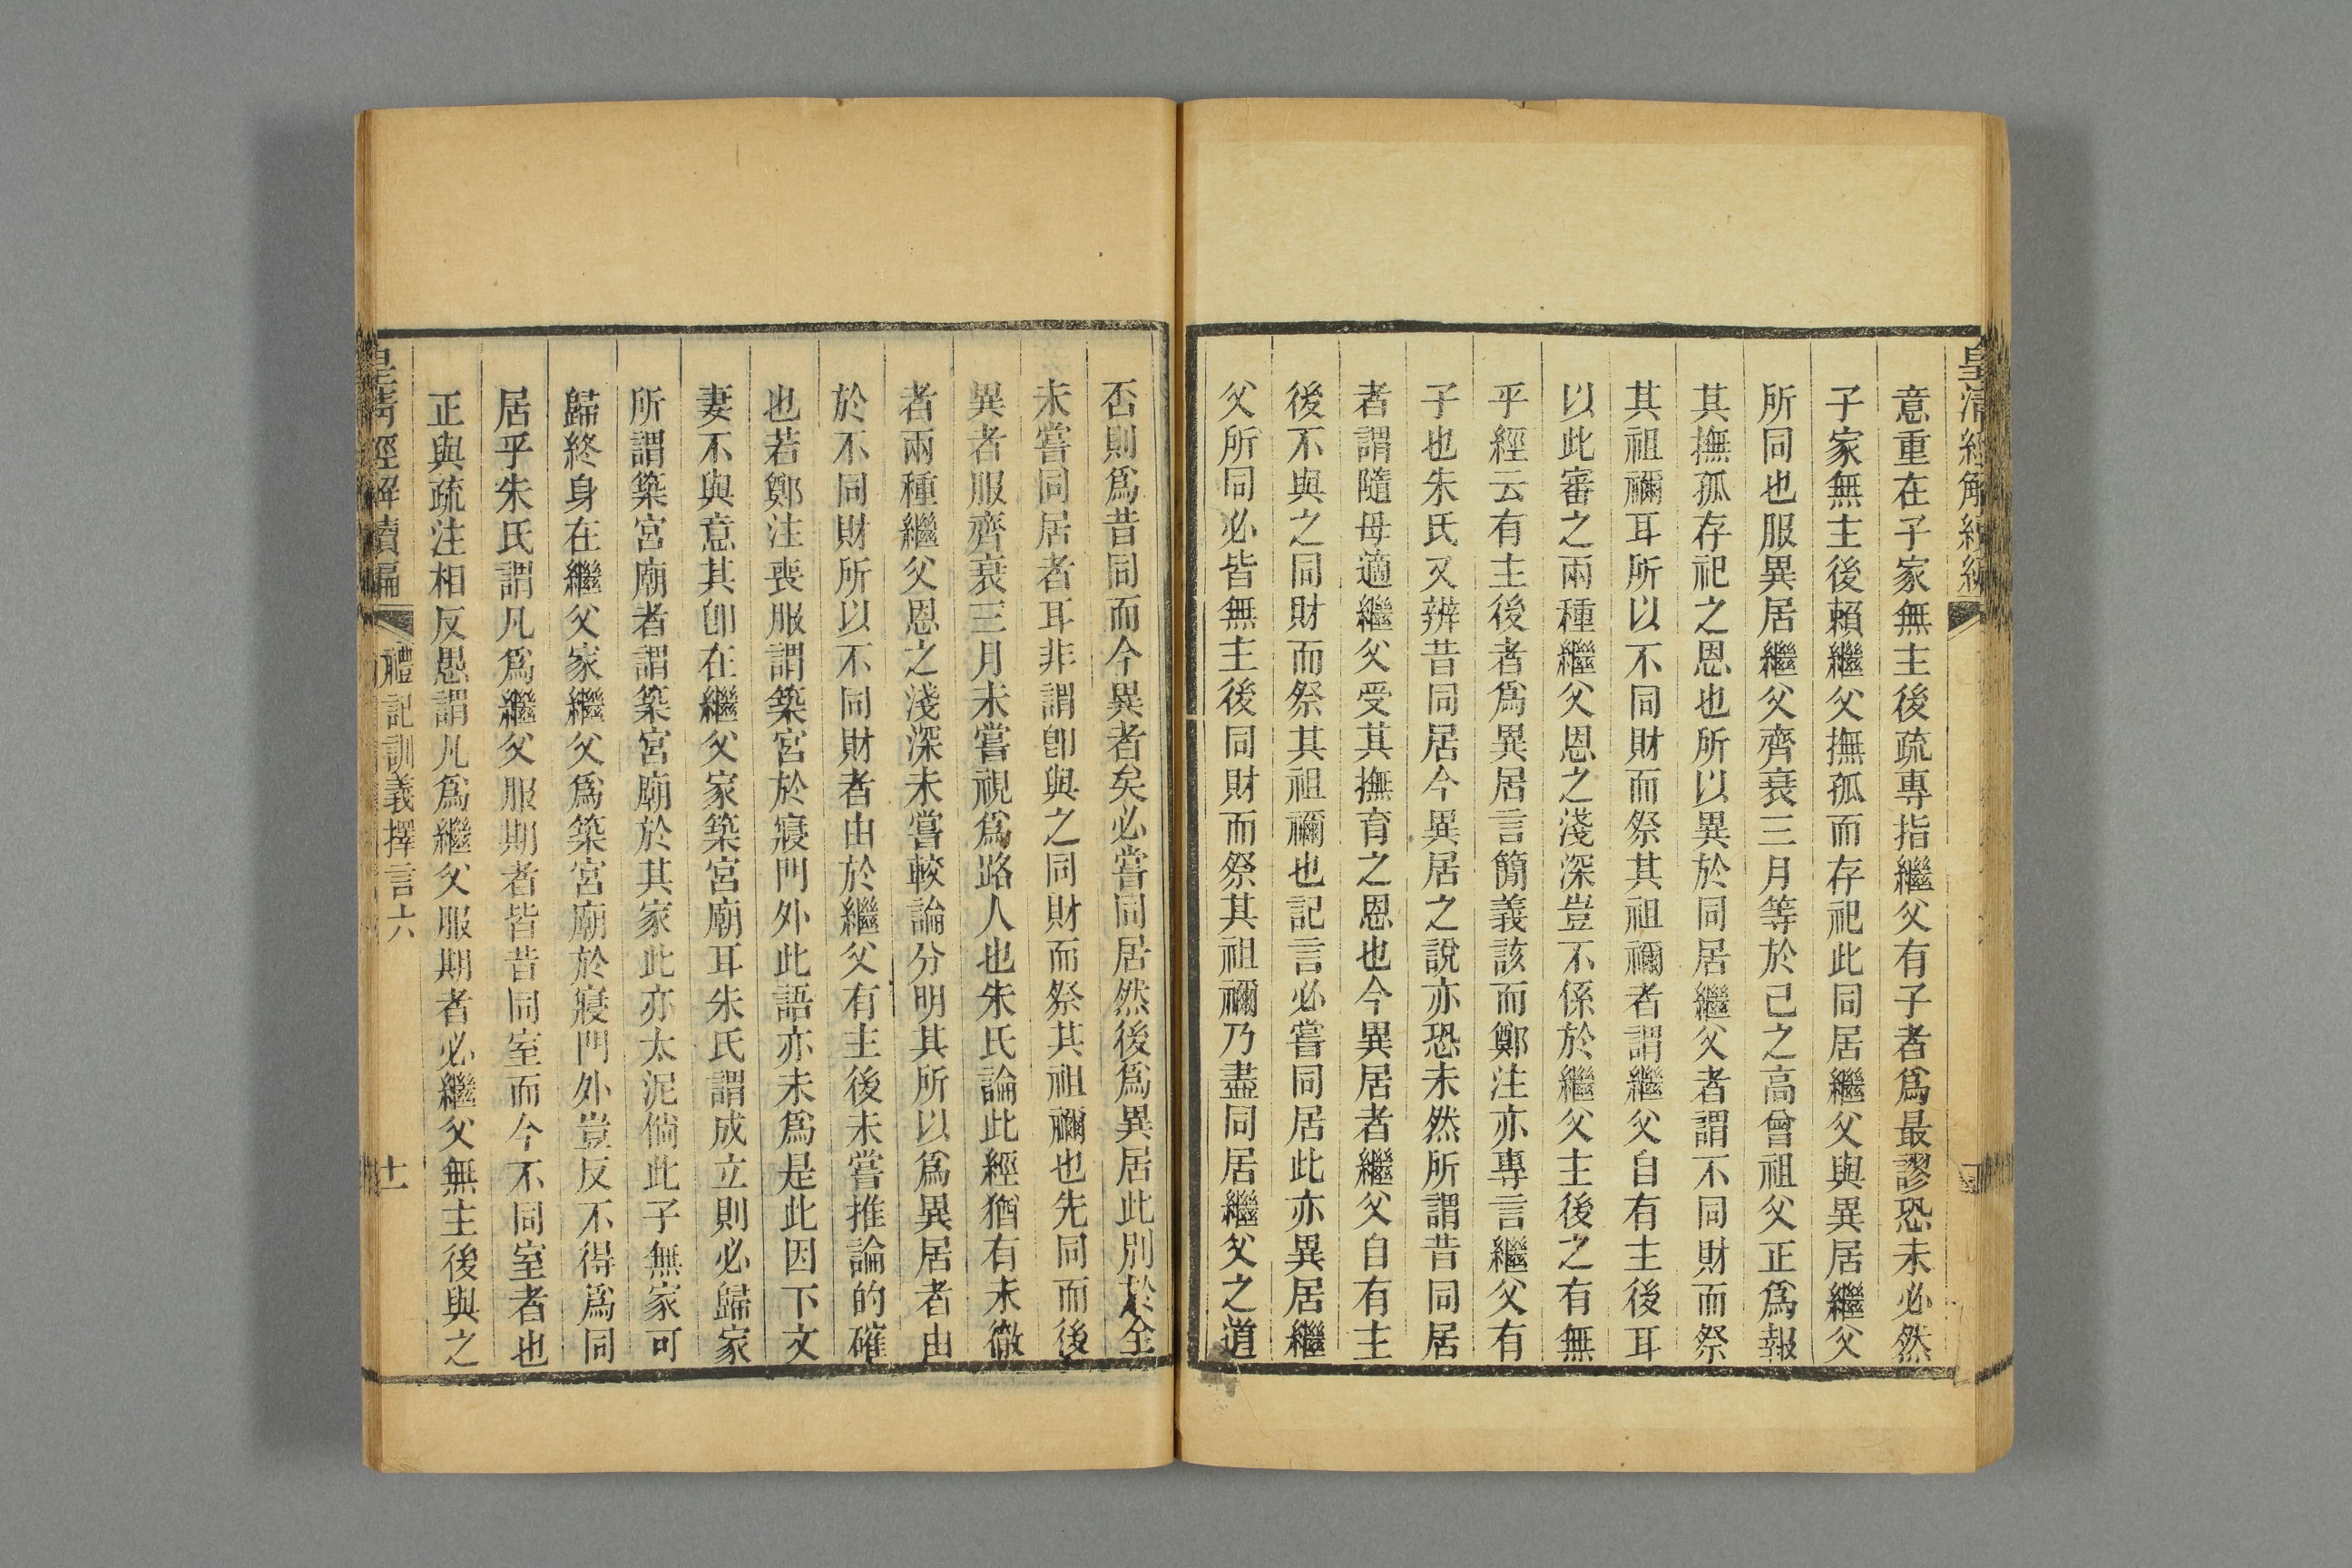 皇清經解續編
意重在子家無主後疏專指繼父有子者爲最謬恐未必然
子家無主後賴繼父撫孤而存祀此同居繼父與異居繼父
所同也服異居繼父齊衰三月等於己之高曾祖父正爲報
其撫孤存祀之恩也所以異於同居繼父者謂不同財而祭
其祖禰耳所以不同財而祭其祖禰者謂繼父自有主後耳
以此審之兩種繼父恩之淺深豈不係於繼父主後之有無
乎經云有主後者爲異居言簡義該而鄭注亦專言繼父有
子也朱氏又辨昔同居今異居之說亦恐未然所謂昔同居
者謂隨母適繼父受其撫育之恩也今異居者繼父自有主
後不與之同財而祭其祖禰也記言必嘗同居此亦異居繼
父所同必皆無主後同財而祭其祖禰乃盡同居繼父之道
否則爲昔同而今異者矣必嘗同居然後爲異居此別於全
未嘗同居者耳非謂卽與之同財而祭其祖禰也先同而後
異者服齊衰三月未嘗視爲路人也朱氏論此經猶有未徹
者兩種繼父恩之淺深未嘗較論分明其所以爲異居者由
於不同財所以不同財者由於繼父有主後未嘗推論的確
也若鄭注喪服謂築宮於寢門外此語亦未爲是此因下文
妻不與意其卽在繼父家築宮廟耳朱氏謂成立則必歸家
所謂築宮廟者謂築宮廟於其家此亦太泥倘此子無家可
歸終身在繼父家繼父爲築宮廟於寢門外豈反不得爲同
居乎朱氏謂凡爲繼父服期者皆昔同室而今不同室者也
正與疏注相反愚謂凡爲繼父服期者必繼父無主後與之
皇清經解續編
禮記訓義擇言六
十一